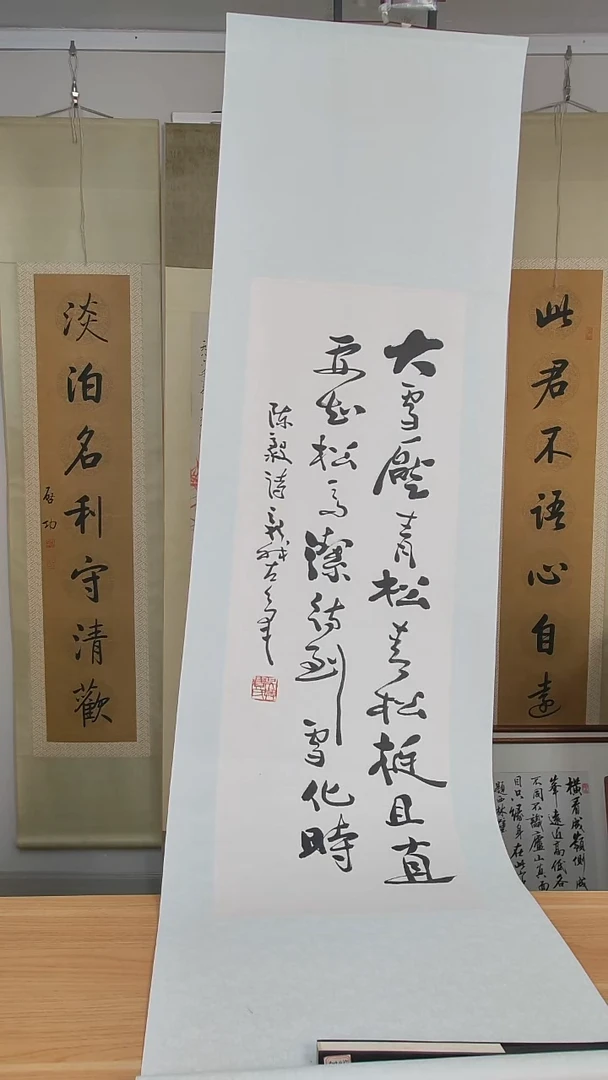 大雪壓青松青松挺且直
要知松高潔待到雪化時
陈毅诗
此君不语心自遠
淡泊名利守清歡
启功
橫看成嶺側成
峯遠近高低各
不同不識廬山真面
目只緣身在此
題西林壁